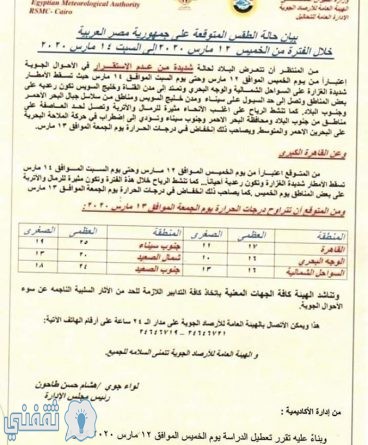 Egyptian Meteorological Authority
RSMC- Cairo
الهيئة العامة للأرصاد الجوية
الإدارة العامة للتحاليل
بيان حالة الطقس المتوقعة على جمهورية مصر العربية
خلال الفترة من الخميس ١٢ مارس ٢٠٢٠ إلى السبت ١٤ مارس ٢٠٢٠
من المنتظر أن تتعرض البلاد لحالة شديدة من عدم الاستقرار في الأحوال الجوية
اعتباراً من يوم الخميس الموافق ١٢ مارس وحتى يوم السبت الموافق ١٤ مارس حيث تسقط الأمطار
شديدة الغزارة على السواحل الشمالية والوجه البحري وتمتد إلى مدن القناة وخليج السويس تكون رعدية على
بعض المناطق وتصل إلى حد السيول على سيناء ومدن خليج السويس ومناطق من سلاسل جبال البحر الأحمر
وجنوب البلاد كما تنشط الرياح على أغلب الأنحاء مثيرة للرمال والأتربة وتصل لحد العاصفة على
جنوب البلاد ومحافظة البحر الأحمر وجنوب سيناء وتؤدي إلى اضطراب في حركة الملاحة البحرية
على البحرين الأحمر والمتوسط ويصاحب ذلك انخفاض في درجات الحرارة يوم الجمعة الموافق ١٣ مارس.
وعن القاهرة الكبرى
من المتوقع اعتباراً من يوم الخميس الموافق ١٢ مارس وحتى يوم السبت الموافق ١٤ مارس
تسقط الأمطار شديدة الغزارة وتكون رعدية أحياناً.. كما تنشط الرياح خلال هذة الفترة وتكون مثيرة للرمال والاتربة
على بعض المناطق يوم الخميس. كما يصاحب ذلك انخفاض في درجات الحرارة يوم الجمعة الموافق ١٣ مارس.
ومن المتوقع أن تتراوح درجات الحرارة يوم الجمعة الموافق ١٣ مارس ٢٠٢٠:
المنطقة العظمى الصغرى المنطقة العظمى الصغرى
القاهرة ١٧ ١١ جنوب سيناء ٢٥ ١٩
الوجه البحري ١٦ ١٠ شمال الصعيد ٢٠ ١٣
السواحل الشمالية ١٦ ١٣ جنوب الصعيد ٢٤ ١٨
وتناشد الهيئة كافة الجهات المعنية باتخاذ كافة التدابير اللازمة للحد من الآثار السلبية الناجمه عن سوء
الأحوال الجوية.
هذا ويمكن الاتصال بالهيئة العامة للأرصاد الجوية على مدار الـ ٢٤ ساعة على أرقام الهاتف الاتية:
٢٤٦٤٦٧١٩ - ٢٤٦٤٦٧٢١
و الهيئة العامة للأرصاد الجوية تتمنى السلامه للجميع.
لواء جوي / هشام حسن طاحون
رئيس مجلس الإدارة
من إدارة الأكاديمية :
وبناءً عليه تقرر تعطيل الدراسة يوم الخميس الموافق ١٢ مارس ٢٠٢٠
ثقفني